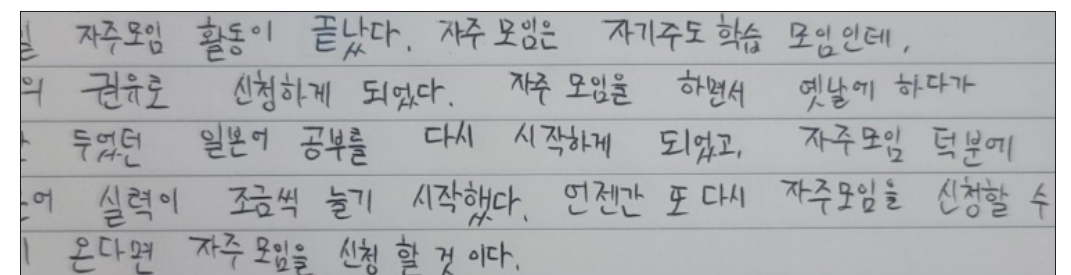 자주모임 활동이 끝났다. 자주 모임은 자기주도 학습 모임인데,
권유로 신청하게 되었다. 자주 모임을 하면서 옛날에 하다가
두었던 일본어 공부를 다시 시작하게 되었고, 자주모임 덕분에
실력이 조금씩 늘기 시작했다. 언젠간 또 다시 자주모임을 신청할 수
온다면 자주 모임을 신청 할 것 이다.